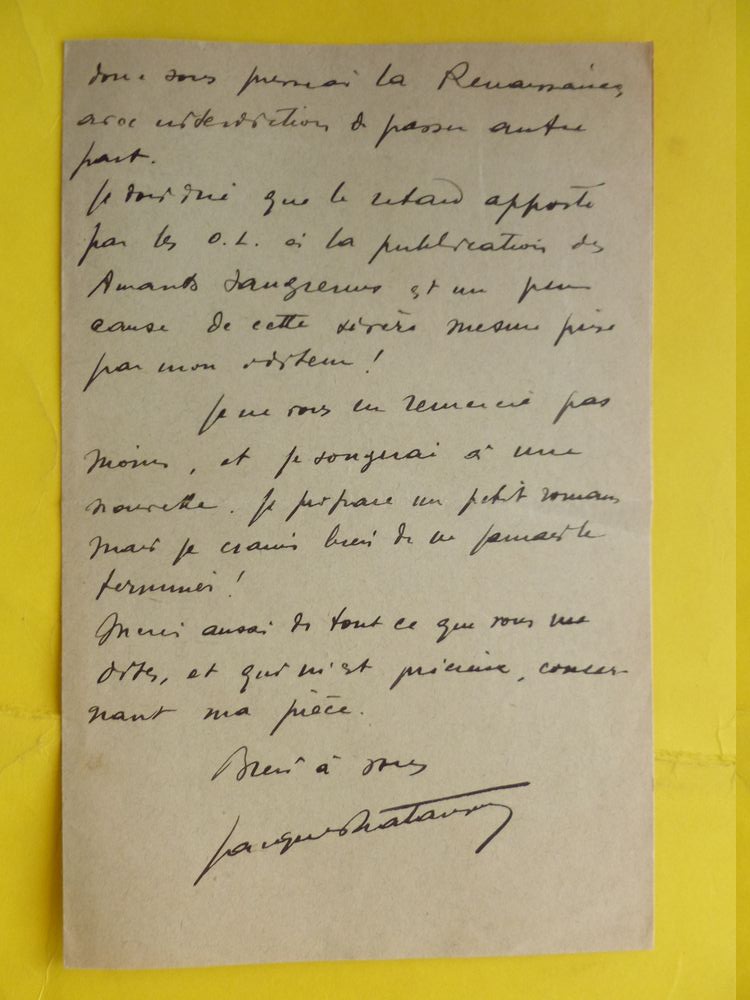 donc sous presse à la Renaissance,
avec interdiction de passer autre
part.
Je dois dire que le retard apporté
par les O. L. à la publication des
Amants saugrenus est un peu
cause de cette sévère mesure prise
par mon éditeur !
Je ne vous en remercie pas
moins, et je songerai à une
nouvelle. Je prépare un petit roman
mais je crains bien de ne jamais le
terminer !
Merci aussi de tout ce que vous me
dites, et qui m'est précieux, concer-
nant ma pièce.
Bien à vous
Jacques Natanson